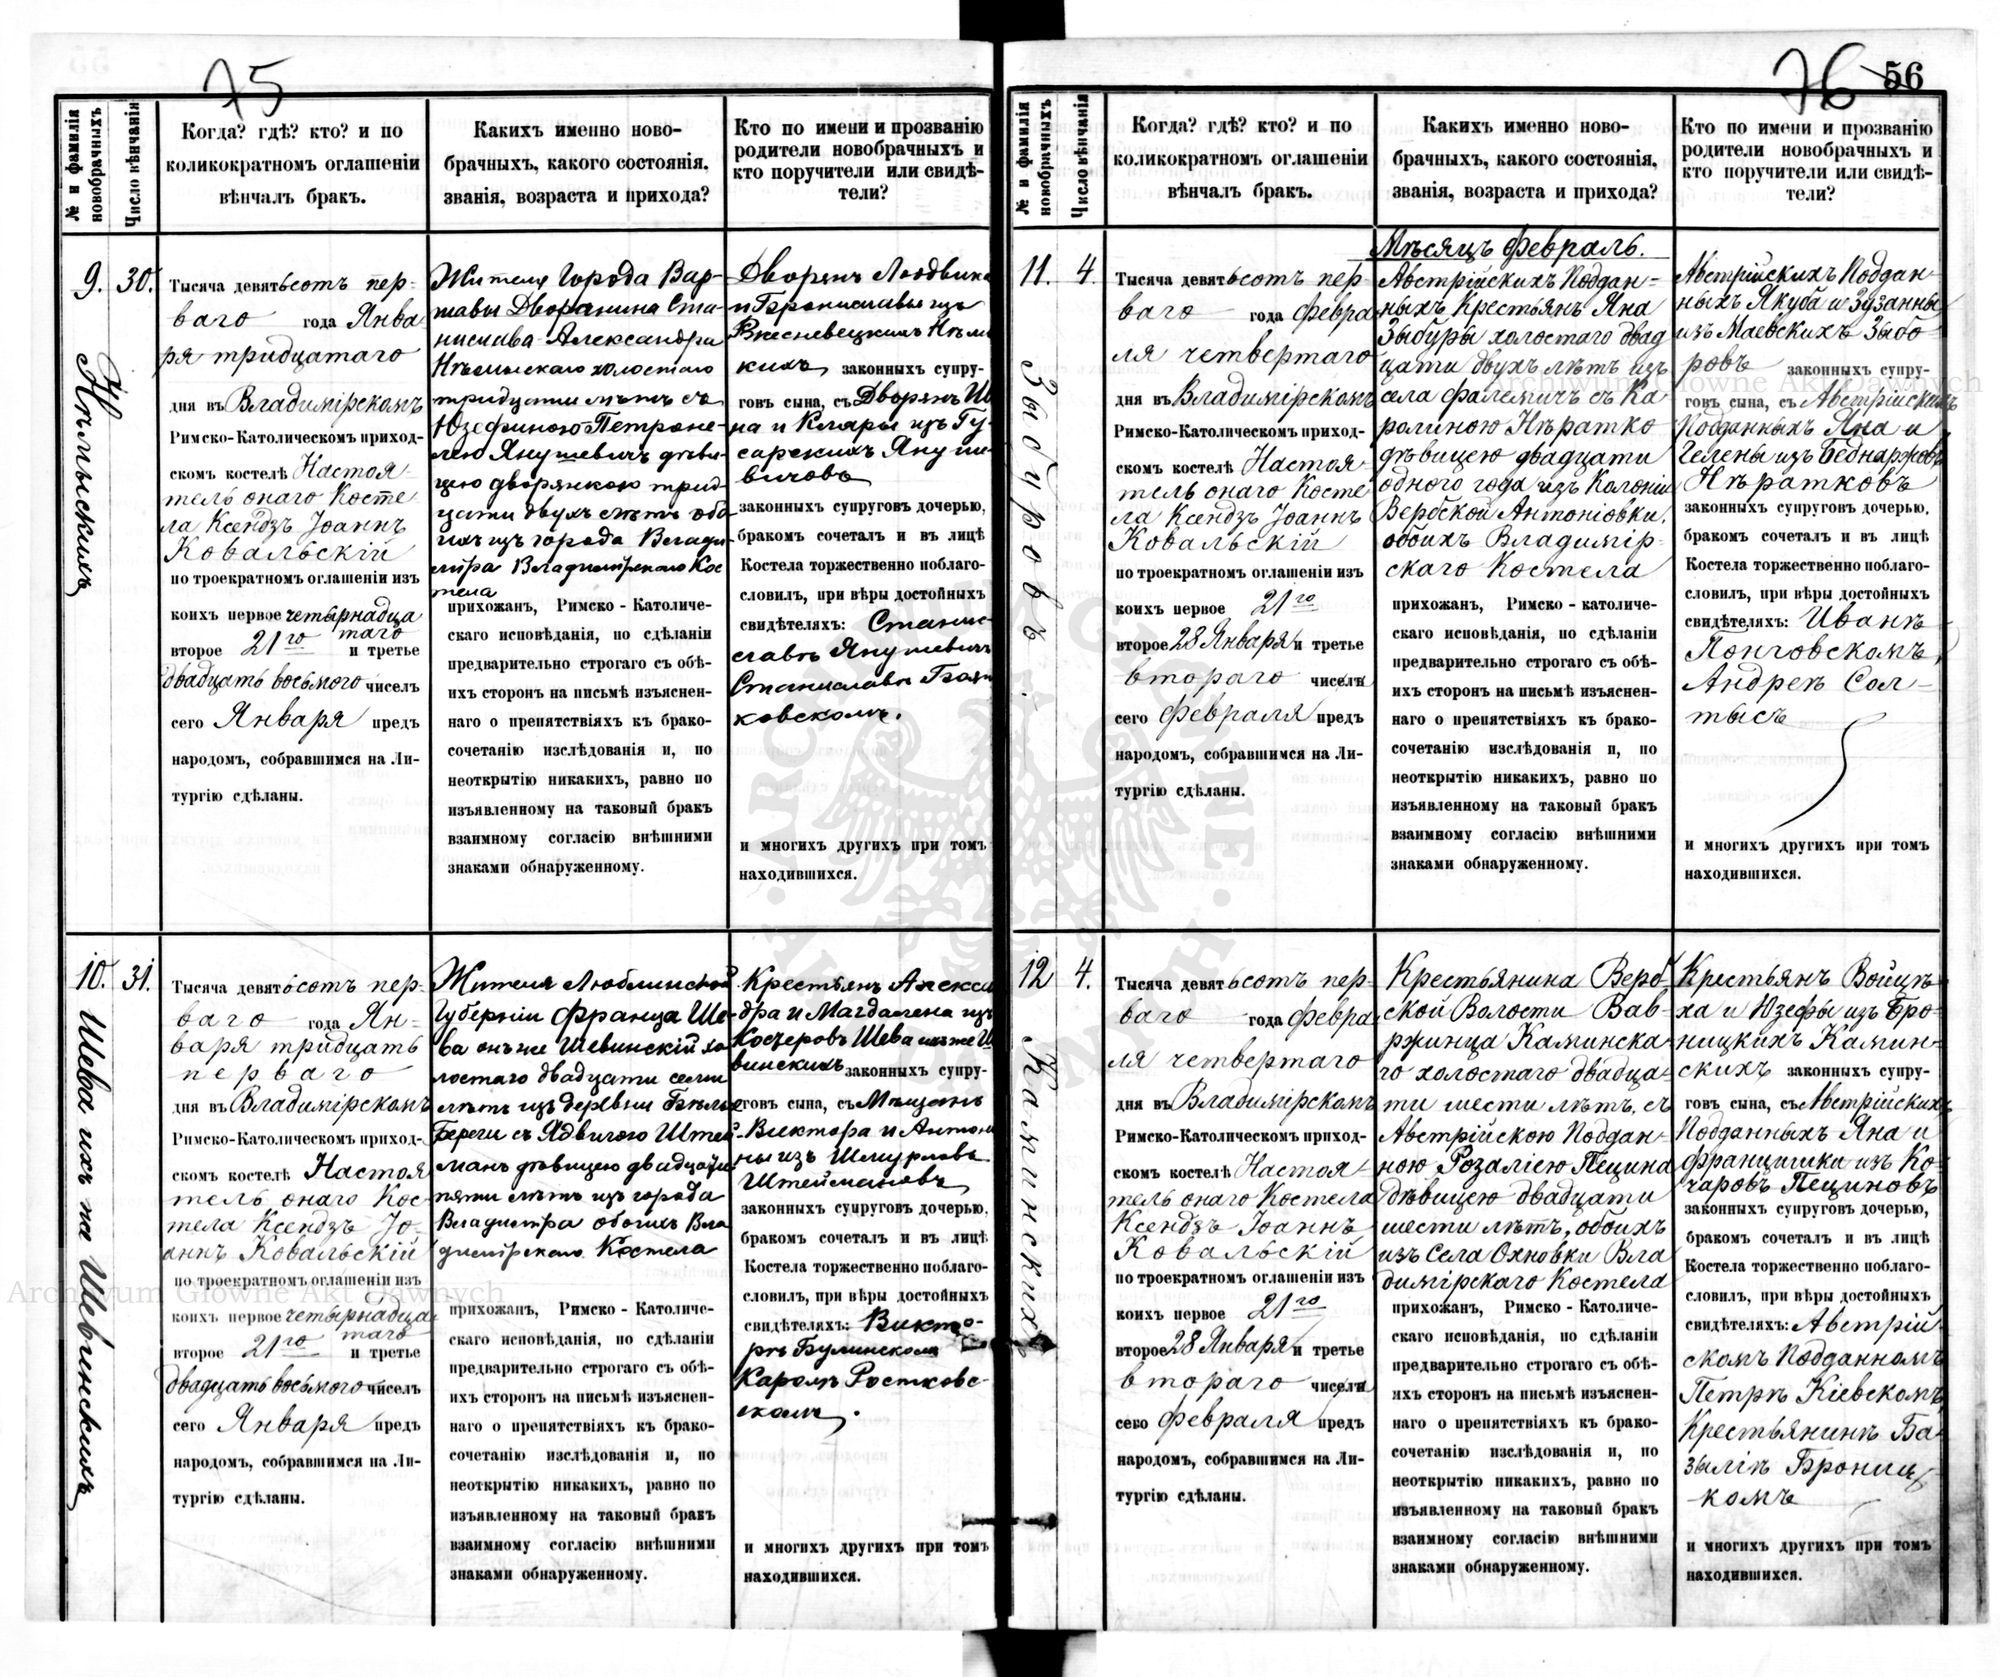 75
№ и фамилія новобрачныхъ
Число вѣнчанія
Когда? гдѣ? кто? и по
коликократномъ оглашеніи
вѣнчалъ бракъ.
Какихъ именно ново-
брачныхъ, какого состоянія,
званія, возраста и прихода?
Кто по имени и прозванію
родители новобрачныхъ и
кто поручители или свидѣ-
тели?
9.
Нѣмыскихъ
30.
Тысяча девятьсотъ пер-
ваго года Янва
ря тридцатаго
дня въ Владимірскомъ
Римско-Католическомъ приход-
скомъ костелѣ Настоя-
тель онаго Косте
ла Ксендзъ Іоаннъ
Ковальскій
по троекратномъ оглашеніи изъ
коихъ первое четырнадца
таго
второе 21го и третье
двадцать восьмого чиселъ
сего Января предъ
народомъ, собравшимся на Ли-
тургію сдѣланы.
Жителя Города Вар-
шавы Дворянина Ста-
нислава-Александра
Нѣмыскаго холостаго
тридцати лѣтъ съ
Юзефиною-Петроне-
лею Янушевичъ дѣви-
цею дворянкою трид-
цати двухъ лѣтъ обо
ихъ изъ города Влади-
міра Владимірскаго Кос
тела
прихожанъ, Римско - Католиче-
скаго исповѣданія, по сдѣланіи
предварительно строгаго съ обѣ-
ихъ сторонъ на письмѣ изъяснен-
наго о препятствіяхъ къ брако-
сочетанію изслѣдованія и, по
неоткрытію никакихъ, равно по
изъявленному на таковый бракъ
взаимному согласію внѣшними
знаками обнаруженному.
Дворянъ Людвика
и Брониславы изъ
Нѣмы
кихъ законныхъ супру-
говъ сына, съ Дворянъ
на и Клары изъ Гу-
сарскихъ Януше-
вичовъ
законныхъ супруговъ дочерью,
бракомъ сочеталъ и въ лицѣ
Костела торжественно поблаго-
словилъ, при вѣры достойныхъ
свидѣтеляхъ: Станис-
лавѣ Янушевичъ
Станиславѣ
ковскомъ.
и многихъ другихъ при томъ
находившихся.
10.
Шева ихъ же Шевинскихъ
31.
Тысяча девятьсотъ пер-
ваго года Ян-
варя тридцать
перваго
дня въ Владимірскомъ
Римско-Католическомъ приход-
скомъ костелѣ Настоя
тель онаго Кос-
тела Ксендзъ Іо-
аннъ Ковальскій
по троекратномъ оглашеніи изъ
коихъ первое четырнадца
таго
второе 21го и третье
двадцать восьмого чиселъ
сего Января предъ
народомъ, собравшимся на Ли-
тургію сдѣланы.
Жителя Люблинской
Губерніи Франца Ше-
ва онъ же Шевинскій хо
лостаго двадцати семи
лѣтъ изъ деревни Бѣлые
Береги съ Ядвигою Штей-
манъ дѣвицею двадцати
пяти лѣтъ изъ города
Владиміра обоихъ Вла
димірскаго Костела
прихожанъ, Римско - Католиче-
скаго исповѣданія, по сдѣланіи
предварительно строгаго съ обѣ-
ихъ сторонъ на письмѣ изъяснен-
наго о препятствіяхъ къ брако-
сочетанію изслѣдованія и, по
неоткрытію никакихъ, равно по
изъявленному на таковый бракъ
взаимному согласію внѣшними
знаками обнаруженному.
Крестьянъ Алекса
дра и Магдалена изъ
Косцеровъ Шева ихъ же Ш
винскихъ законныхъ супру-
говъ сына, съ Мѣщанъ
Виктора и Антони
ны изъ Шмурловъ
Штеймановъ
законныхъ супруговъ дочерью,
бракомъ сочеталъ и въ лицѣ
Костела торжественно поблаго-
словилъ, при вѣры достойныхъ
свидѣтеляхъ: Викто-
рѣ Булинскомъ
Каролѣ Ростковс-
комъ.
и многихъ другихъ при томъ
находившихся.
76
56
№ и фамилія новобрачныхъ
Число вѣнчанія
Когда? гдѣ? кто? и по
коликократномъ оглашеніи
вѣнчалъ бракъ.
Какихъ именно ново-
брачныхъ, какого состоянія,
званія, возраста и прихода?
Кто по имени и прозванію
родители новобрачныхъ и
кто поручители или свидѣ-
тели?
Мѣсяцъ Февраль.
11.
Зыбуровъ.
4.
Тысяча девятьсотъ пер-
ваго года Февра
ля четвертаго
дня въ Владимірскомъ
Римско-Католическомъ приход-
скомъ костелѣ Настоя-
тель онаго Косте
ла Ксендзъ Іоаннъ
Ковальскій
по троекратномъ оглашеніи изъ
коихъ первое 21го
второе 28 Января и третье
втораго чиселъ
сего Февраля предъ
народомъ, собравшимся на Ли-
тургію сдѣланы.
Австрійскихъ Поддан-
ныхъ Крестьянъ Яна
Зыбуры холостаго двад
цати двухъ лѣтъ изъ
села Фалемичъ съ Ка
ролиною Нѣратко
дѣвицею двадцати
одного года изъ Колоніи
Вербской Антоніовки,
обоихъ Владимір-
скаго Костела
прихожанъ, Римско - католиче-
скаго исповѣданія, по сдѣланіи
предварительно строгаго съ обѣ-
ихъ сторонъ на письмѣ изъяснен-
наго о препятствіяхъ къ брако-
сочетанію изслѣдованія и, по
неоткрытію никакихъ, равно по
изъявленному на таковый бракъ
взаимному согласію внѣшними
знаками обнаруженному.
Австрійскихъ Поддан
ныхъ Якуба и Зузанны
изъ Маевскихъ Зыбо
ровъ законныхъ супру-
говъ сына, съ Австрійскихъ
Подданныхъ Яна и
Гелены изъ Беднаржовъ
Нѣратковъ
законныхъ супруговъ дочерью,
бракомъ сочеталъ и въ лицѣ
Костела торжественно поблаго-
словилъ, при вѣры достойныхъ
свидѣтеляхъ: Иванѣ
Понговскомъ,
Андреѣ Сол-
тысъ
и многихъ другихъ при томъ
находившихся.
12
Каминскихъ
4.
Тысяча девятьсотъ пер-
ваго года Февра
ля четвертаго
дня въ Владимірскомъ
Римско-Католическомъ приход-
скомъ костелѣ Настоя-
тель онаго Костела
Ксендзъ Іоаннъ
Ковальскій
по троекратномъ оглашеніи изъ
коихъ первое 21го
второе 28 Января и третье
втораго чиселъ
сего Февраля предъ
народомъ, собравшимся на Ли-
тургію сдѣланы.
Крестьянина Верб
ской Волости Вав-
ржинца Каминска-
го холостаго двадца-
ти шести лѣтъ, съ
Австрійскою Поддан-
ною Розаліею Пецина
дѣвицею двадцати
шести лѣтъ, обоихъ
изъ Села Охновки Вла
димірскаго Костела
прихожанъ, Римско - Католиче-
скаго исповѣданія, по сдѣланіи
предварительно строгаго съ обѣ-
ихъ сторонъ на письмѣ изъяснен-
наго о препятствіяхъ къ брако-
сочетанію изслѣдованія и, по
неоткрытію никакихъ, равно по
изъявленному на таковый бракъ
взаимному согласію внѣшними
знаками обнаруженному.
Крестьянъ Войцѣ
ха и Юзефы изъ Бро-
ницкихъ Камин-
скихъ законныхъ супру-
говъ сына, съ Австрійскихъ
Подданныхъ Яна и
Францишки изъ Ко-
чаровъ Пециновъ
законныхъ супруговъ дочерью,
бракомъ сочеталъ и въ лицѣ
Костела торжественно поблаго-
словилъ, при вѣры достойныхъ
свидѣтеляхъ: Австрій
скомъ Подданномъ
Петрѣ Кіевскомъ,
Крестьянинѣ Ба-
зыліѣ Брониц-
комъ
и многихъ другихъ при томъ
находившихся.
Archiwum Główne Akt Dawnych
Archiwum Główne Akt Dawnych
ARCHIWUM GŁÓWNE AKT DAWNYCH